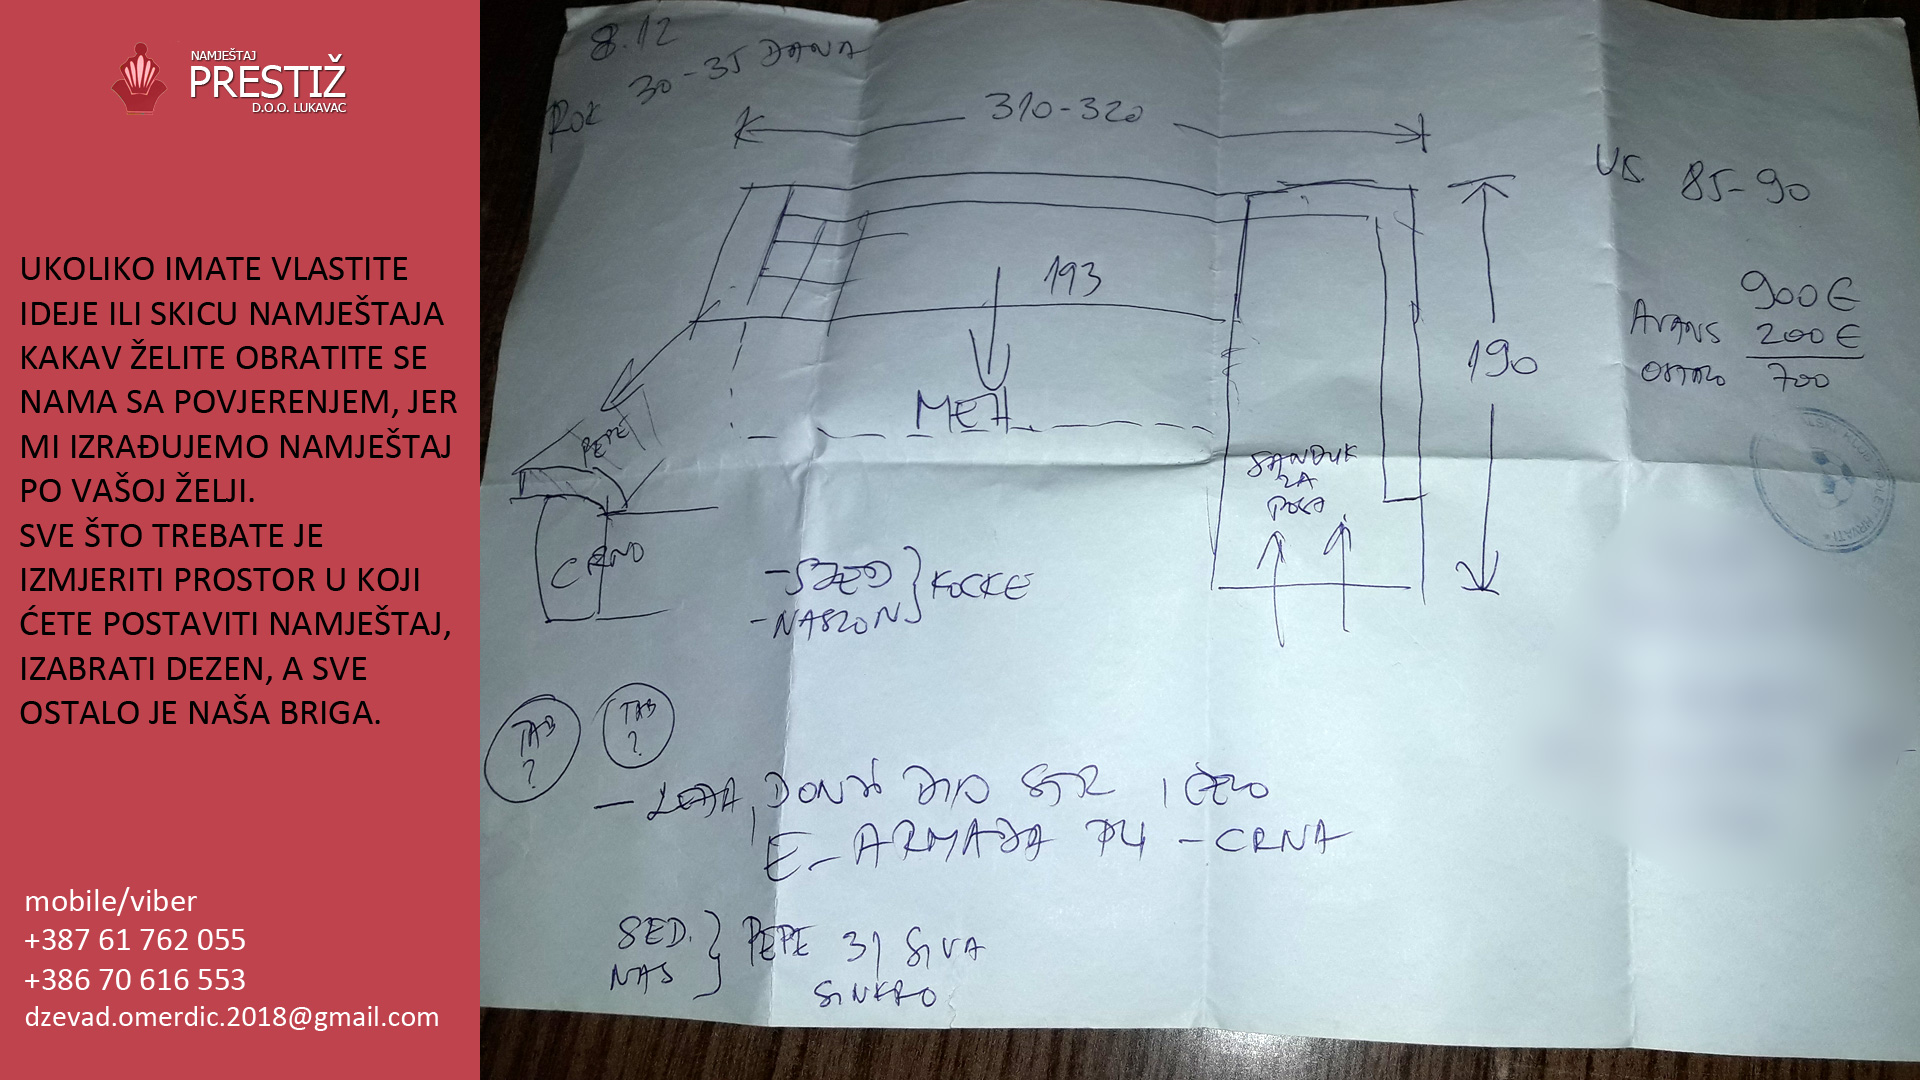 NAMJEŠTAJ
PRESTIŽ
D.O.O. LUKAVAC
UKOLIKO IMATE VLASTITE
IDEJE ILI SKICU NAMJEŠTAJA
KAKAV ŽELITE OBRATITE SE
NAMA SA POVJERENJEM, JER
MI IZRAĐUJEMO NAMJEŠTAJ
PO VAŠOJ ŽELJI.
SVE ŠTO TREBATE JE
IZMJERITI PROSTOR U KOJI
ĆETE POSTAVITI NAMJEŠTAJ,
IZABRATI DEZEN, A SVE
OSTALO JE NAŠA BRIGA.
mobile/viber
+387 61 762 055
+386 70 616 553
dzevad.omerdic.2018@gmail.com
8.12
ROK 30-35 DANA
310-320
VIS 85-90
193
190
900€
AVANS 200€
OSTALO 700
MEH.
PEPE
CRNO
SANDUK
ZA
- SJED
- NASLON
KOCKE
TAB
?
TAB
?
DONJI DIO
E-ARMADA P4 - CRNA
SED.
NAS
PEPE 31 SIVA
SINKRO
HRVATI